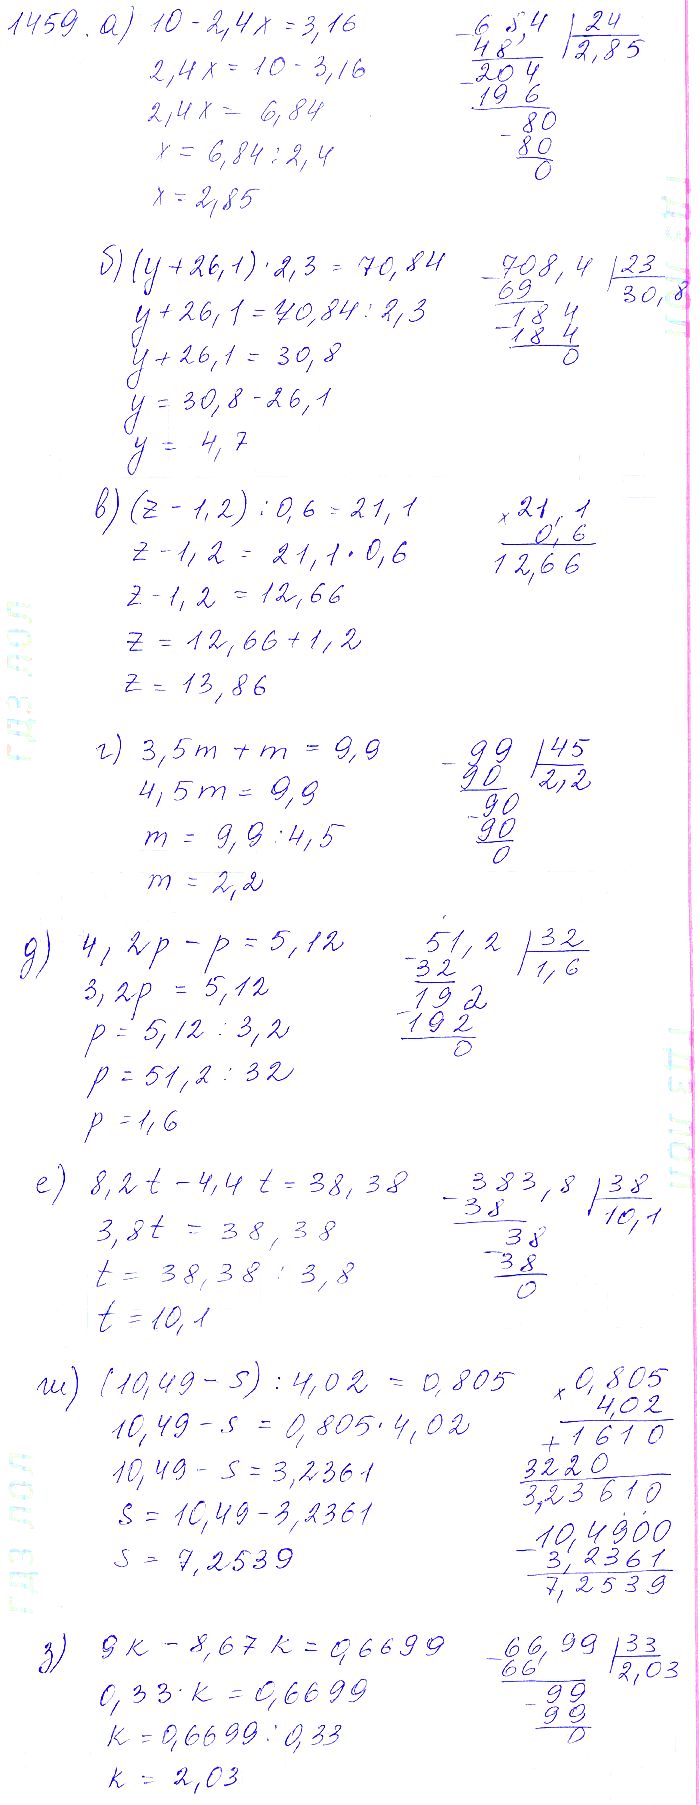 1459. а) 10 - 2,4x = 3,16
2,4x = 10 - 3,16
2,4x = 6,84
x = 6,84 : 2,4
x = 2,85
- 68,4 | 24
48 2,85
- 204
196
- 80
80
0
б) (y + 26,1) · 2,3 = 70,84
y + 26,1 = 70,84 : 2,3
y + 26,1 = 30,8
y = 30,8 - 26,1
y = 4,7
- 708,4 | 23
69 30,8
- 184
184
0
в) (z - 1,2) : 0,6 = 21,1
z - 1,2 = 21,1 · 0,6
z - 1,2 = 12,66
z = 12,66 + 1,2
z = 13,86
x 21,1
0,6
12,66
г) 3,5m + m = 9,9
4,5m = 9,9
m = 9,9 : 4,5
m = 2,2
- 99 | 45
90 2,2
- 90
90
0
д) 4,2p - p = 5,12
3,2p = 5,12
p = 5,12 : 3,2
p = 51,2 : 32
p = 1,6
- 51,2 | 32
32 1,6
- 192
192
0
е) 8,2t - 4,4t = 38,38
3,8t = 38,38
t = 38,38 : 3,8
t = 10,1
- 383,8 | 38
38 10,1
- 38
38
0
ж) (10,49 - s) : 4,02 = 0,805
10,49 - s = 0,805 · 4,02
10,49 - s = 3,2361
s = 10,49 - 3,2361
s = 7,2539
x 0,805
4,02
+ 1610
3220
3,23610
- 10,4900
3,2361
7,2539
з) 9k - 8,67k = 0,6699
0,33 · k = 0,6699
k = 0,6699 : 0,33
k = 2,03
- 66,99 | 33
66 2,03
- 99
99
0
ГДЗ ЛОЛ
ГДЗ ЛОЛ
ГДЗ ЛОЛ
ГДЗ ЛОЛ